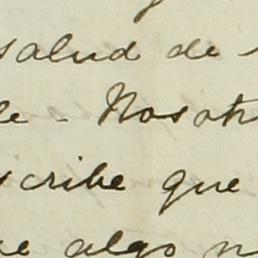 salud de
le - Nosot
scribe que
ue algo n